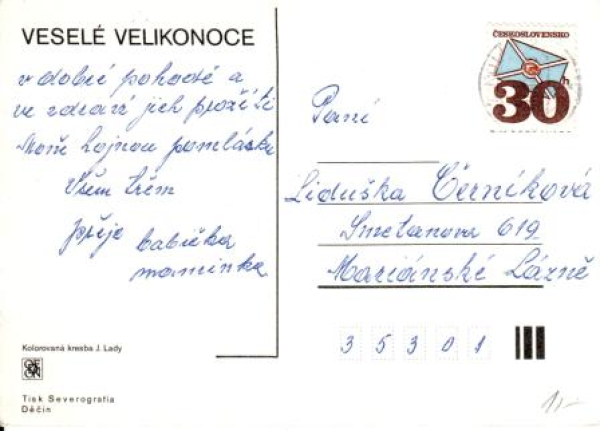 VESELÉ VELIKONOCE
v dobré pohodě a
ve zdraví jich prožití
hojnou pomlázku
Všem třem
přeje babička
maminka
Kolorovaná kresba J. Lady
Tisk Severografia
Děčín
ČESKOSLOVENSKO
30 h
Paní
Liduška Černíková
Smetanova 619
Mariánské Lázně
3 5 3 0 1